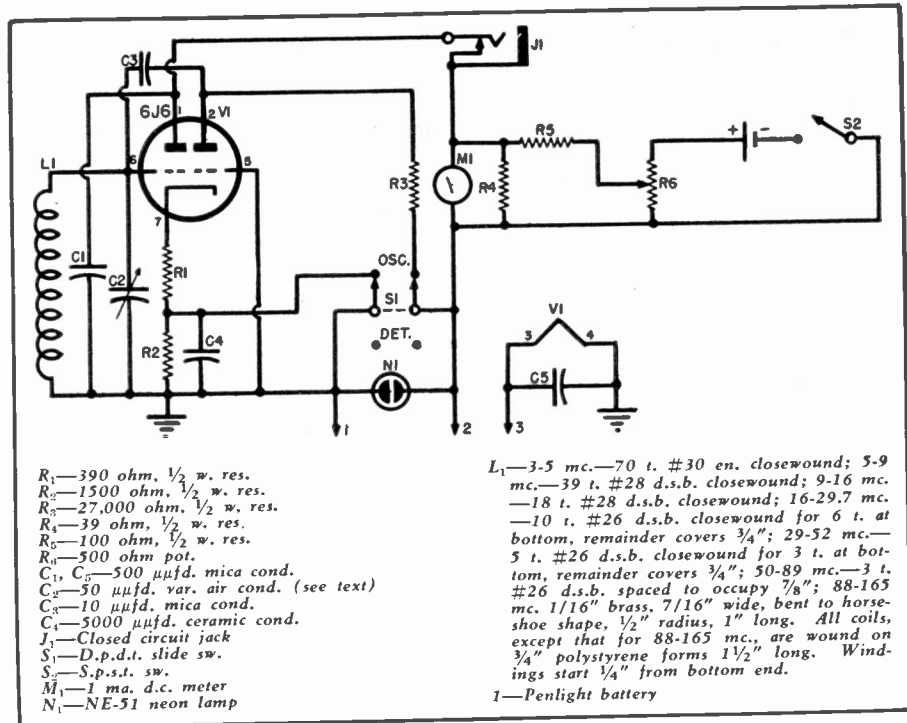 C3
J1
6J6
1
2 V1
L1
6
5
7
R3
M1
R4
R5
R6
+
-
S2
C1
C2
R1
OSC.
S1
DET.
R2
C4
N1
V1
3
4
C5
1
2
3
R₁—390 ohm, ½ w. res.
R₂—1500 ohm, ½ w. res.
R₃—27,000 ohm, ½ w. res.
R₄—39 ohm, ½ w. res.
R₅—100 ohm, ½ w. res.
R₆—500 ohm pot.
C₁, C₅—500 μμfd. mica cond.
C₂—50 μμfd. var. air cond. (see text)
C₃—10 μμfd. mica cond.
C₄—5000 μμfd. ceramic cond.
J₁—Closed circuit jack
S₁—D.p.d.t. slide sw.
S₂—S.p.s.t. sw.
M₁—1 ma. d.c. meter
N₁—NE-51 neon lamp
L₁—3-5 mc.—70 t. #30 en. closewound; 5-9
mc.—39 t. #28 d.s.b. closewound; 9-16 mc.
—18 t. #28 d.s.b. closewound; 16-29.7 mc.
—10 t. #26 d.s.b. closewound for 6 t. at
bottom, remainder covers ¾"; 29-52 mc.—
5 t. #26 d.s.b. closewound for 3 t. at bot-
tom, remainder covers ¾"; 50-89 mc.—3 t.
#26 d.s.b. spaced to occupy ⅞"; 88-165
mc. 1/16" brass, 7/16" wide, bent to horse-
shoe shape, ½" radius, 1" long. All coils,
except that for 88-165 mc., are wound on
¾" polystyrene forms 1½" long. Wind-
ings start ¼" from bottom end.
1—Penlight battery